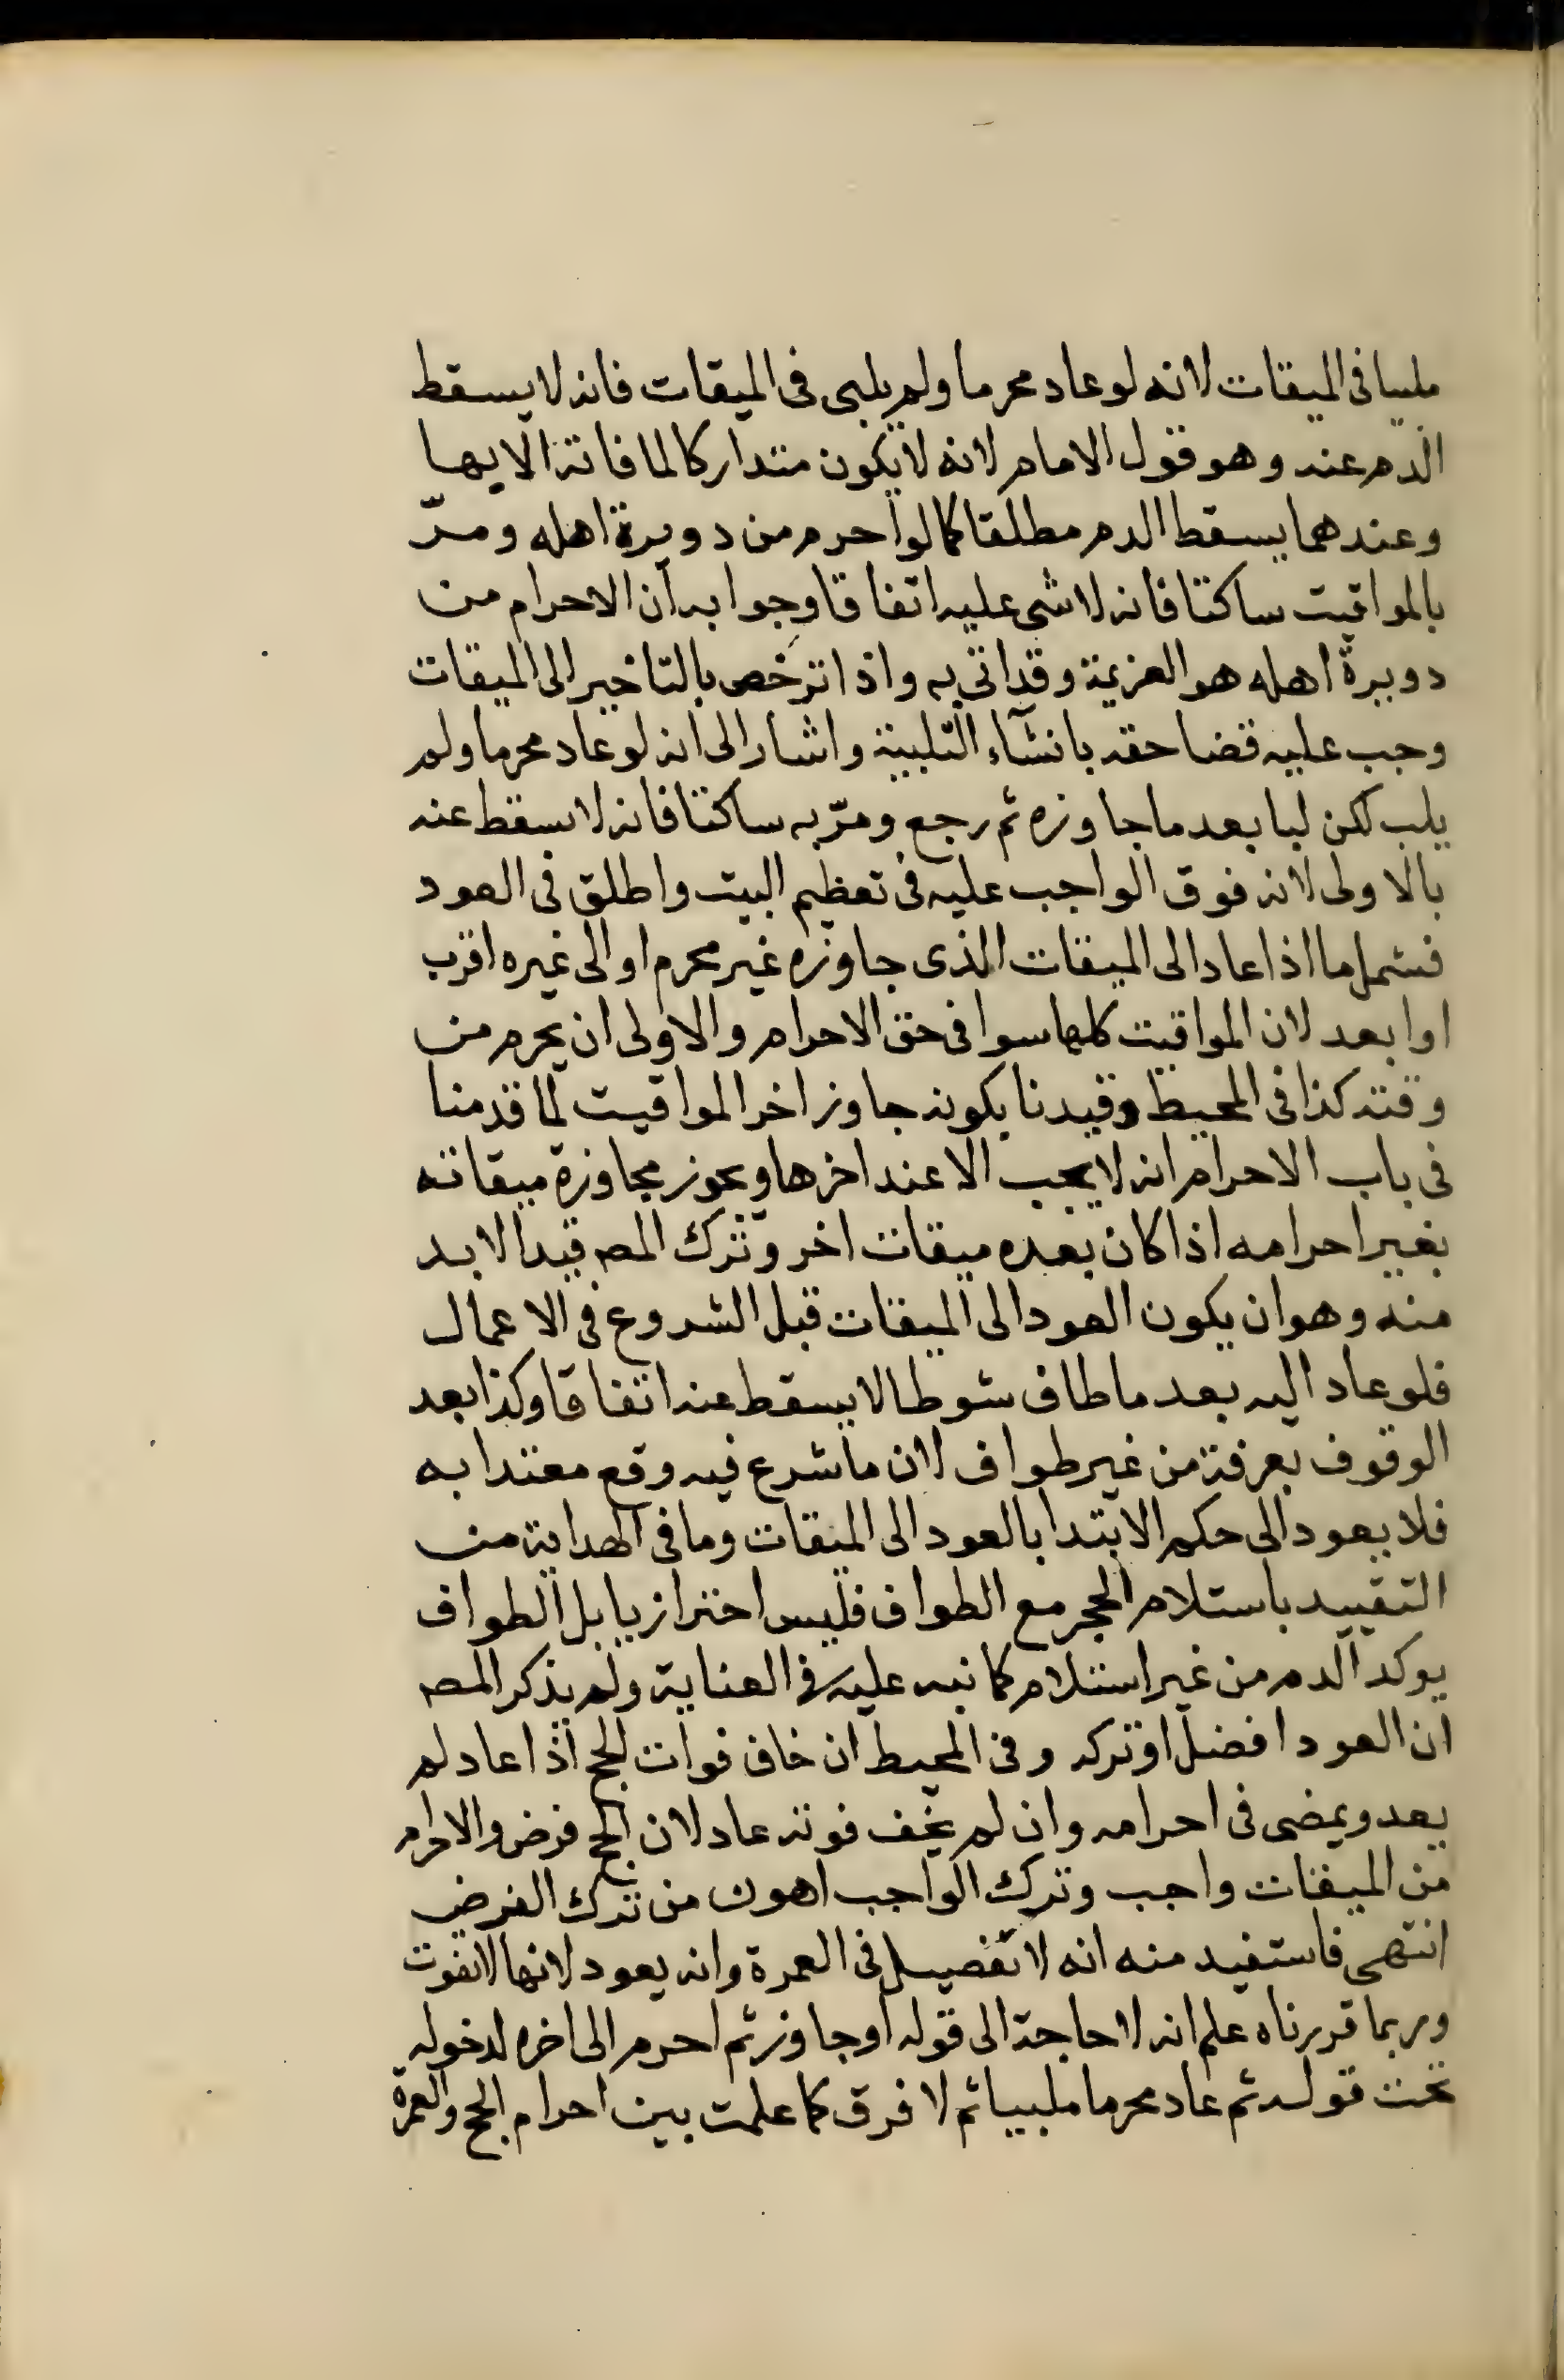 ملبيا فى الميقات لانه لو عاد محرما ولم يلبى فى الميقات فانه لا يسقط
الدم عنه وهو قول الامام لانه لا يكون متداركا لما فاته الا بها
وعندهما يسقط الدم مطلقا كما لو احرم من دويرة اهله ومرّ
بالمواقيت ساكتا فانه لا شى عليه اتفاقا وجوابه ان الاحرام من
دويرة اهله هو العزيمة وقد اتى به واذا ترخص بالتاخير الى الميقات
وجب عليه قضا حقه بانشآء التلبية واشار الى انه لو عاد محرما ولم
يلب لكن لبا بعد ما جاوزه ثم رجع ومرّ به ساكتا فانه لا يسقط عنه
بالاولى لانه فوق الواجب عليه فى تعظيم البيت واطلق فى العود
فشمل ما اذا عاد الى الميقات الذى جاوزه غير محرم او الى غيره اقرب
او ابعد لان المواقيت كلها سوا فى حق الاحرام والاولى ان يحرم من
وقته كذا فى المحيط وقيدنا بكونه جاوز اخر المواقيت لما قدمنا
فى باب الاحرام انه لا يجب الا عند اخرها ويجوز مجاوزة ميقاته
بغير احرامه اذا كان بعده ميقات اخر وترك المصـ قيدا لا بد
منه وهو ان يكون العود الى الميقات قبل الشروع فى الاعمال
فلو عاد اليه بعد ما طاف شوطا لا يسقط عنه اتفاقا وكذا بعد
الوقوف بعرفة من غير طواف لان ما شرع فيه وقع معتدا به
فلا يعود الى حكم الابتدا بالعود الى الميقات وما فى الهداية من
التقييد باستلام الحجر مع الطواف فليس احترازيا بل الطواف
يوكد الدم من غير استلام كما نبه عليه فى العناية ولم يذكر المصـ
ان العود افضل او تركه وفى المحيط ان خاف فوات الحج اذا عاد لم
يعد ويمضى فى احرامه وان لم يخف فوته عاد لان الحج فرض والاحرام
من الميقات واجب وترك الواجب اهون من ترك الفرض
انتهى فاستفيد منه انه لا تفصيل فى العمرة وانه يعود لانها لا تفوت
وبما قررناه علم انه لا حاجة الى قوله او جاوز ثم احرم الى اخره لدخوله
تحت قوله ثم عاد محرما ملبيا ثم لا فرق كما علمت بين احرام الحج والعمرة